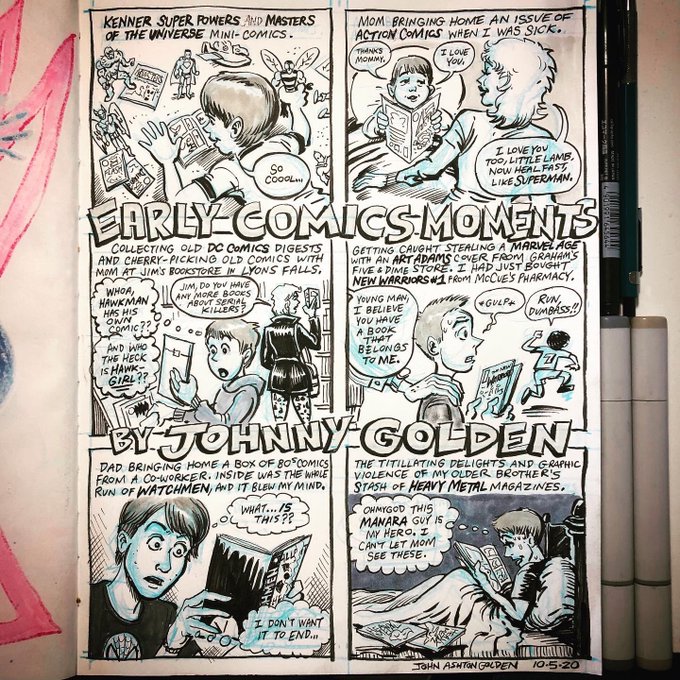 KENNER SUPER POWERS AND MASTERS
OF THE UNIVERSE MINI-COMICS.
SO
COOOL...
MOM BRINGING HOME AN ISSUE OF
ACTION COMICS WHEN I WAS SICK.
THANKS
MOMMY.
I LOVE
YOU.
I LOVE YOU
TOO, LITTLE LAMB.
NOW HEAL FAST,
LIKE SUPERMAN.
EARLY COMICS MOMENTS
COLLECTING OLD DC COMICS DIGESTS
AND CHERRY-PICKING OLD COMICS WITH
MOM AT JIM'S BOOKSTORE IN LYONS FALLS.
WHOA,
HAWKMAN
HAS HIS
OWN
COMIC??
AND WHO
THE HECK
IS HAWK-
GIRL??
JIM, DO YOU HAVE
ANY MORE BOOKS
ABOUT SERIAL
KILLERS?
GETTING CAUGHT STEALING A MARVEL AGE
WITH AN ART ADAMS COVER FROM GRAHAM'S
FIVE & DIME STORE. I HAD JUST BOUGHT
NEW WARRIORS #1 FROM McCUE'S PHARMACY.
YOUNG MAN,
I BELIEVE
YOU HAVE
A BOOK
THAT
BELONGS
TO ME.
*GULP*
RUN,
DUMBASS!!
BY JOHNNY GOLDEN
DAD BRINGING HOME A BOX OF 80S COMICS
FROM A CO-WORKER. INSIDE WAS THE WHOLE
RUN OF WATCHMEN, AND IT BLEW MY MIND.
WHAT...IS
THIS??
I DON'T WANT
IT TO END...
THE TITILLATING DELIGHTS AND GRAPHIC
VIOLENCE OF MY OLDER BROTHER'S
STASH OF HEAVY METAL MAGAZINES.
OHMYGOD THIS
MANARA GUY IS
MY HERO. I
CAN'T LET MOM
SEE THESE.
JOHN ASHTON GOLDEN 10-5-20